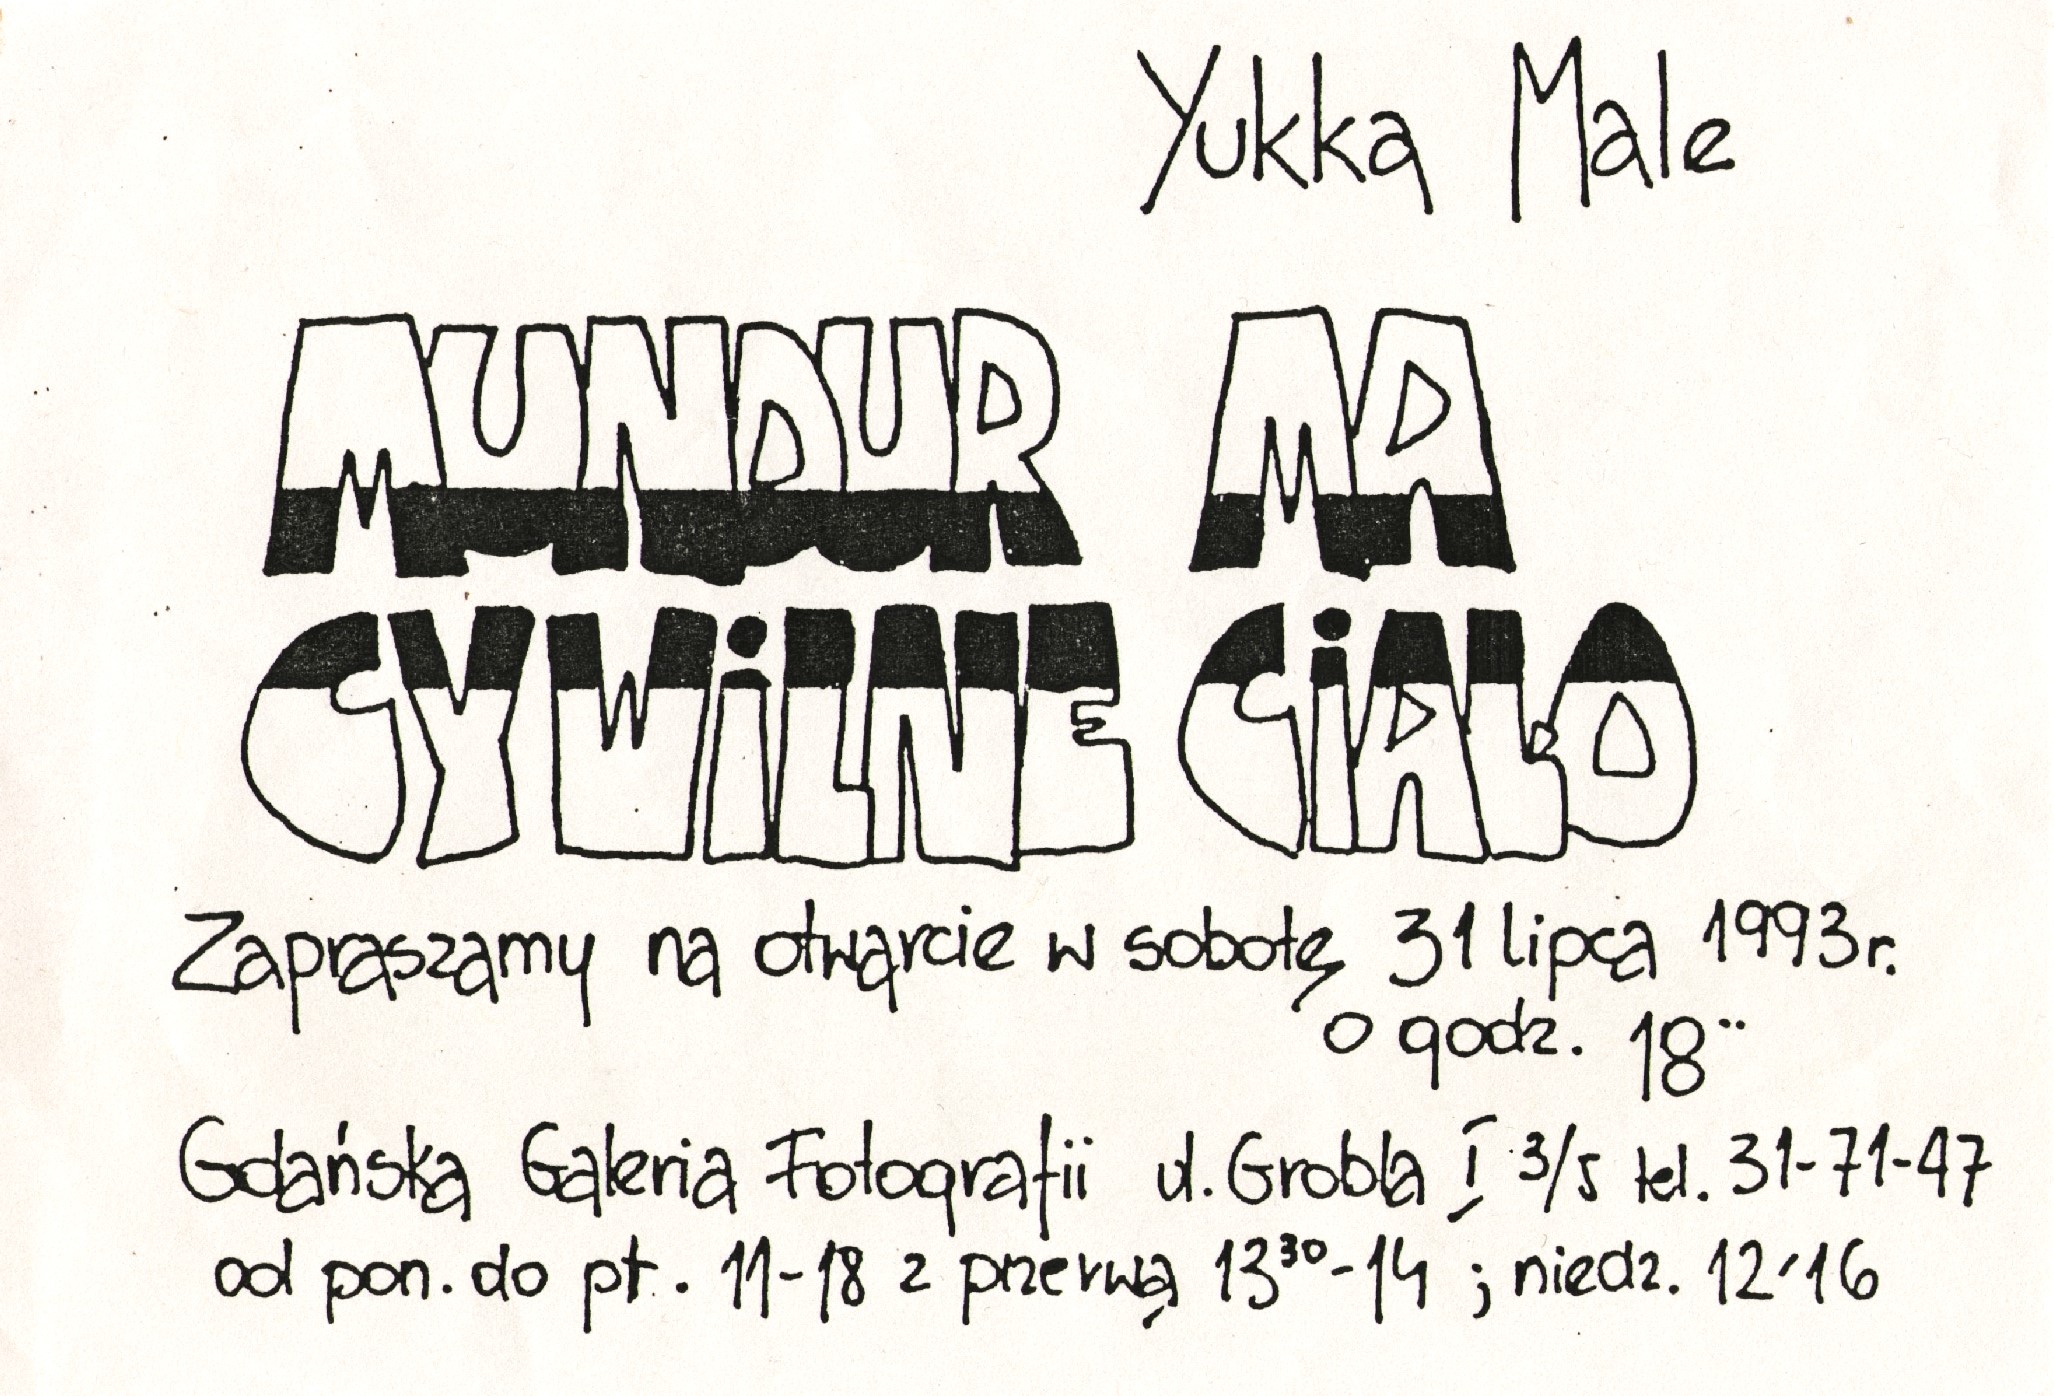 Yukka Male
MUNDUR MA
CYWiLNE CiAŁO
Zapraszamy na otwarcie w sobotę 31 lipca 1993 r.
o godz. 18¨
Gdańska Galeria Fotografii ul. Grobla I 3/5 tel. 31-71-47
od pon. do pt. 11-18 z przerwą 13³⁰-14 ; niedz. 12-16